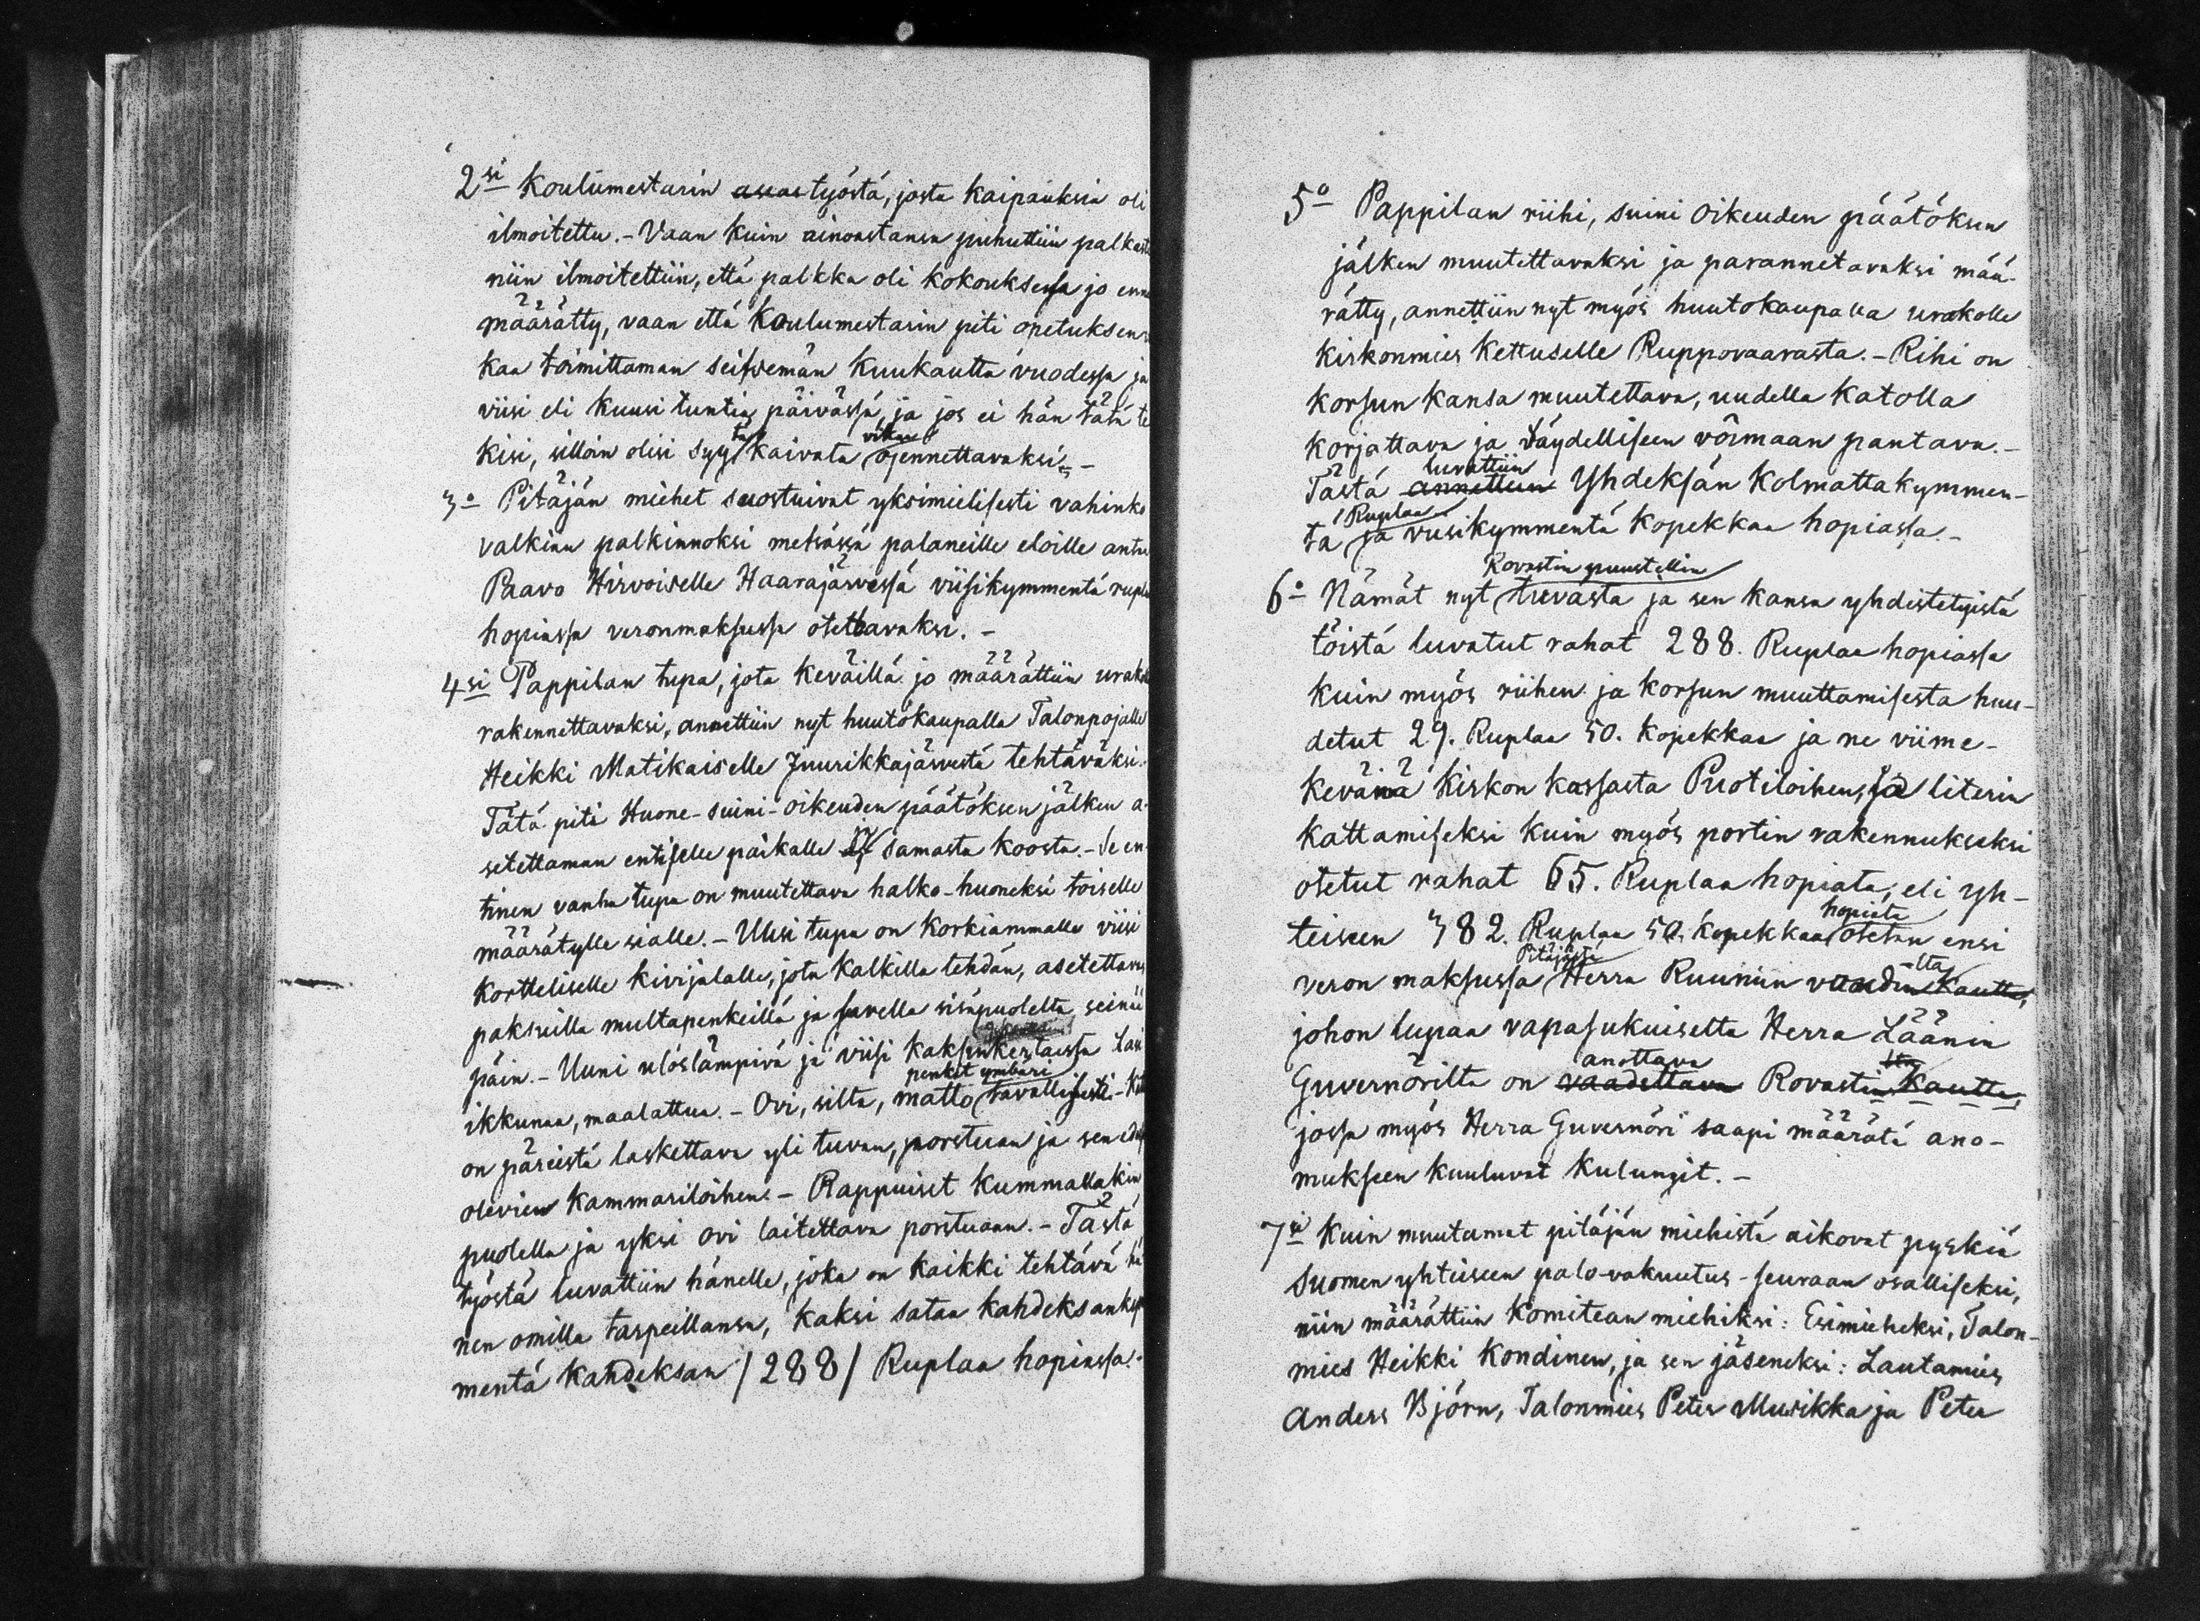 2si Koulumestarin työstä, josta kaipauksia oli
ilmoitettu. - Vaan kuin ainoastansa puhuttiin palkasta
niin ilmoitettiin, että palkka oli kokouksessa jo enn
määrätty, vaan että koulumestarin piti opetuksen
kaa toimittaman seitsemän kuukautta vuodessa ja
viisi eli kuusi tuntia päivässä, ja jos ei hän tätä te
kisi, silloin olisi syytä kaivata vikaa ojennettavaksi. -
3o Pitäjän miehet suostuivat yksimielisesti vahinko
valkian palkinnoksi metsässä palaneille eloille antaa
Paavo Hirvoiselle Haarajärvessä viisikymmentä rupla
hopiassa veronmaksussa otettavaksi. -
4si Pappilan tupa, jota keväillä jo määrättiin urakolle
rakennettavaksi, annettiin nyt huutokaupalla Talonpojalle
Heikki Matikaiselle Juurikkajärvestä tehtäväksi.
Tätä piti Huone-suini-oikeuden päätöksen jälken a-
setettaman entiselle paikalle samasta koosta. - Se en-
tinen vanha tupa on muutettava halko-huoneksi toiselle
määrätylle sialle. - Uusi tupa on korkiammalle viisi
kortteliselle kivijalalle, jota kalkilla tehdän, asetettava
paksuilla multapenkeillä ja savella sisäpuolelta seinää
päin. - Uuni uloslämpivä ja viisi kaksinkertaissa lasi
penkit ymbäri
ikkunaa, maalattua. - Ovi, silta, matto tavallisesti. - Kat
on päreistä laskettava yli tuvan, porstuan ja sen edes
olevien kammariloihen. - Rappuiset kummallakin
puolella ja yksi ovi laitettava porstuaan. - Tästä
työstä luvattiin hänelle, joka on kaikki tehtävä hä
nen omilla tarpeillansa, kaksi sataa kahdeksankym
mentä kahdeksan /288/ Ruplaa hopiassa. -
5o Pappilan riihi, suini oikeuden päätöksen
jälken muutettavaksi ja parannetavaksi mää-
rätty, annettiin nyt myös huutokaupalla urakolle
kirkonmies Kettuselle Ruppovaarasta. - Rihi on
korsun kansa muutettava, uudella katolla
korjattava ja täydelliseen voimaan pantava. -
luvattiin
Tästä annettiin Yhdeksän kolmattakymmen-
Ruplaa
tä ja viisikymmentä kopekkaa hopiassa. -
Rovastin puustellin
6o Nämät nyt tuvasta ja sen kansa yhdistetyistä
töistä luvatut rahat 288. Ruplaa hopiassa
kuin myös riihen ja korsun muuttamisesta huu-
detut 29. Ruplaa 50. kopekkaa ja ne viime-
kevänä kirkon kassasta Puotiloihen, ja literin
kattamiseksi kuin myös portin rakennukseksi
otetut rahat 65. Ruplaa hopiata, eli yh-
hopiata
teiseen 382. Ruplaa 50. kopekkaa otetan ensi
Pitäjästä
veron maksussa Herra Ruunun voudin-lta kautta,
johon lupaa vapasukuiselta Herra Läänin
anottava
Guvernörilta on vaadittava Rovastin-lta kautta,
jossa myös Herra Guvernöri saapi määrätä ano-
mukseen kuuluvat kulungit. -
7si Kuin muutamat pitäjän miehistä aikovat pyrkiä
Suomen yhteiseen palo-vakuutus-seuraan osalliseksi,
niin määrättiin komitean miehiksi: Esimieheksi, Talon-
mies Heikki Kondinen, ja sen jäseneksi: Lautamies
Anders Björn, Talonmies Peter Musikka ja Peter